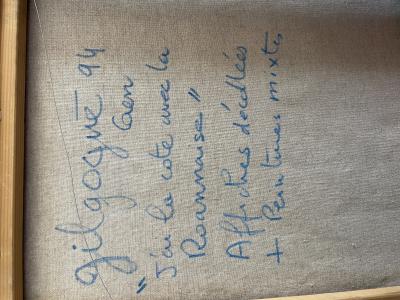 Jilgogué 94
Caen
"J'ai la cote avec la
Roannaise"
Affiches décollées
+ Peintures mixtes